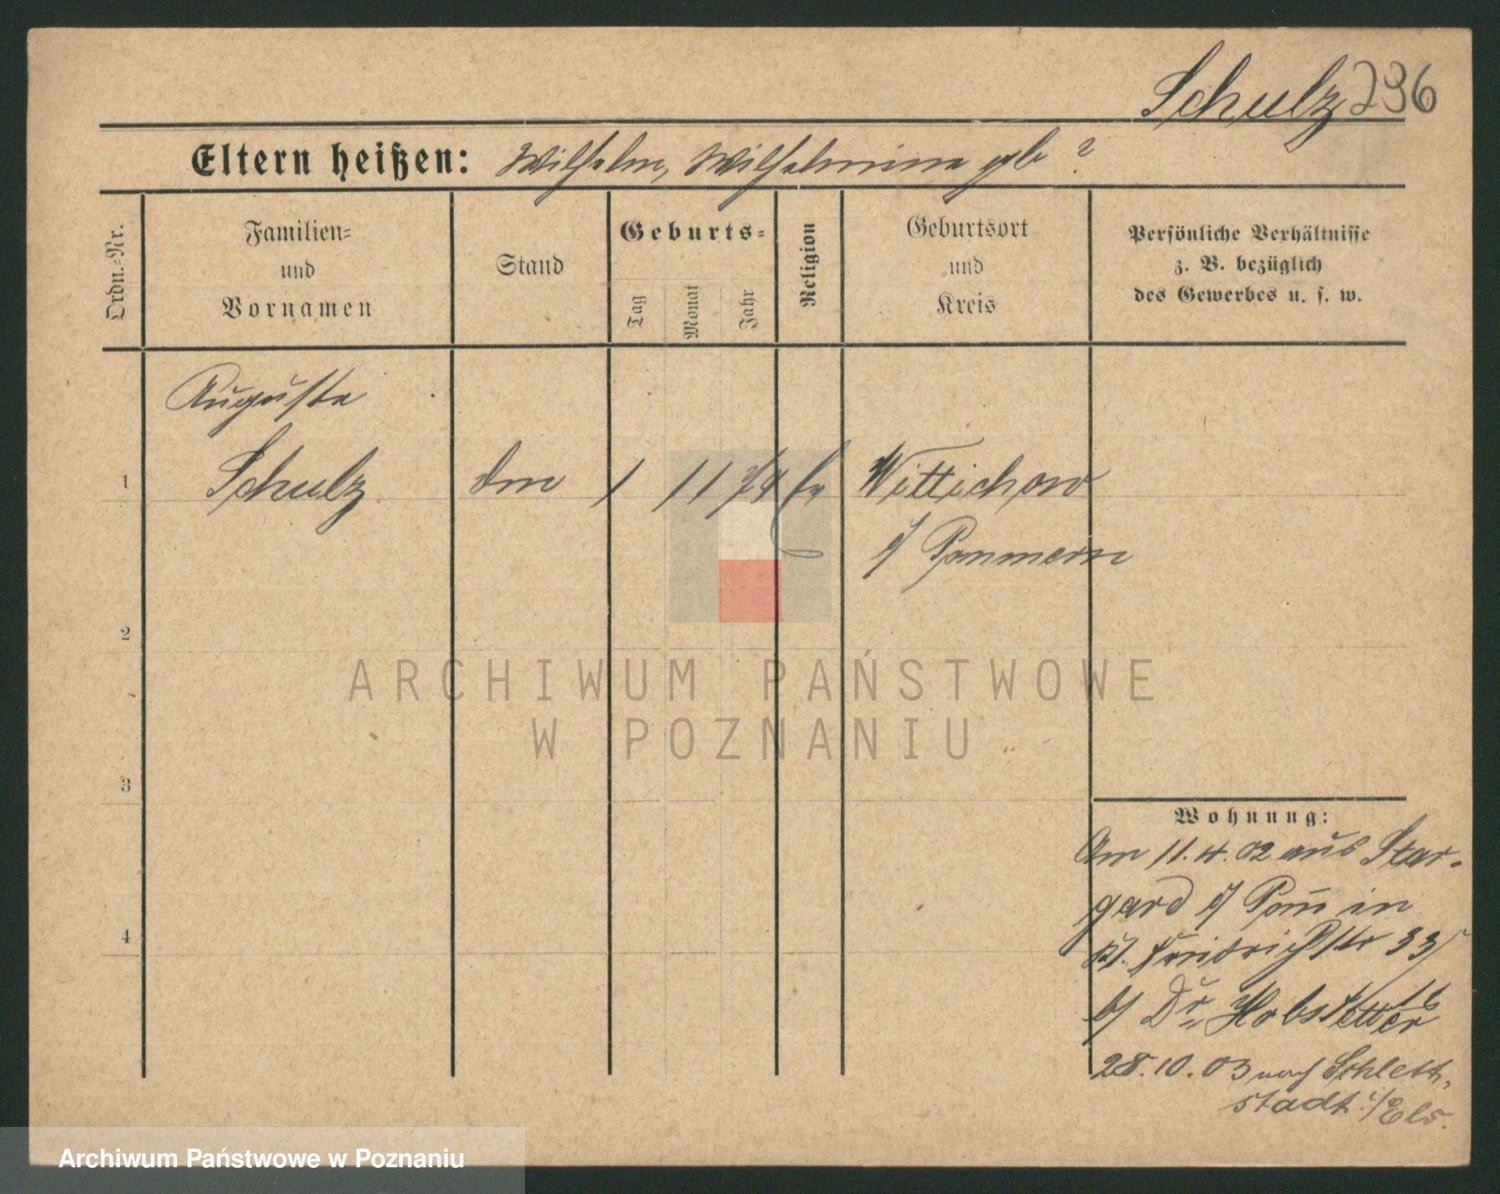 Schulz 236
Eltern heißen: Wilhelm, Wilhelmine gb ?
Ordn.-Nr.
Familien-
und
Vornamen
Stand
Geburts-
Tag
Monat
Jahr
Religion
Geburtsort
und
Kreis
Persönliche Verhältnisse
z. B. bezüglich
des Gewerbes u. s. w.
Auguste
1 Schulz 1 11 79 ev Wittichow
i/ Pommern
2
3
4
ARCHIWUM PAŃSTWOWE
W POZNANIU
Wohnung:
Am 11.4.02 aus Star-
gard i/ Pom in
Friedrichstr 33
b/ Dr. Hobstetter
28.10.03 nach Schlett-
stadt i/Els.
Archiwum Państwowe w Poznaniu